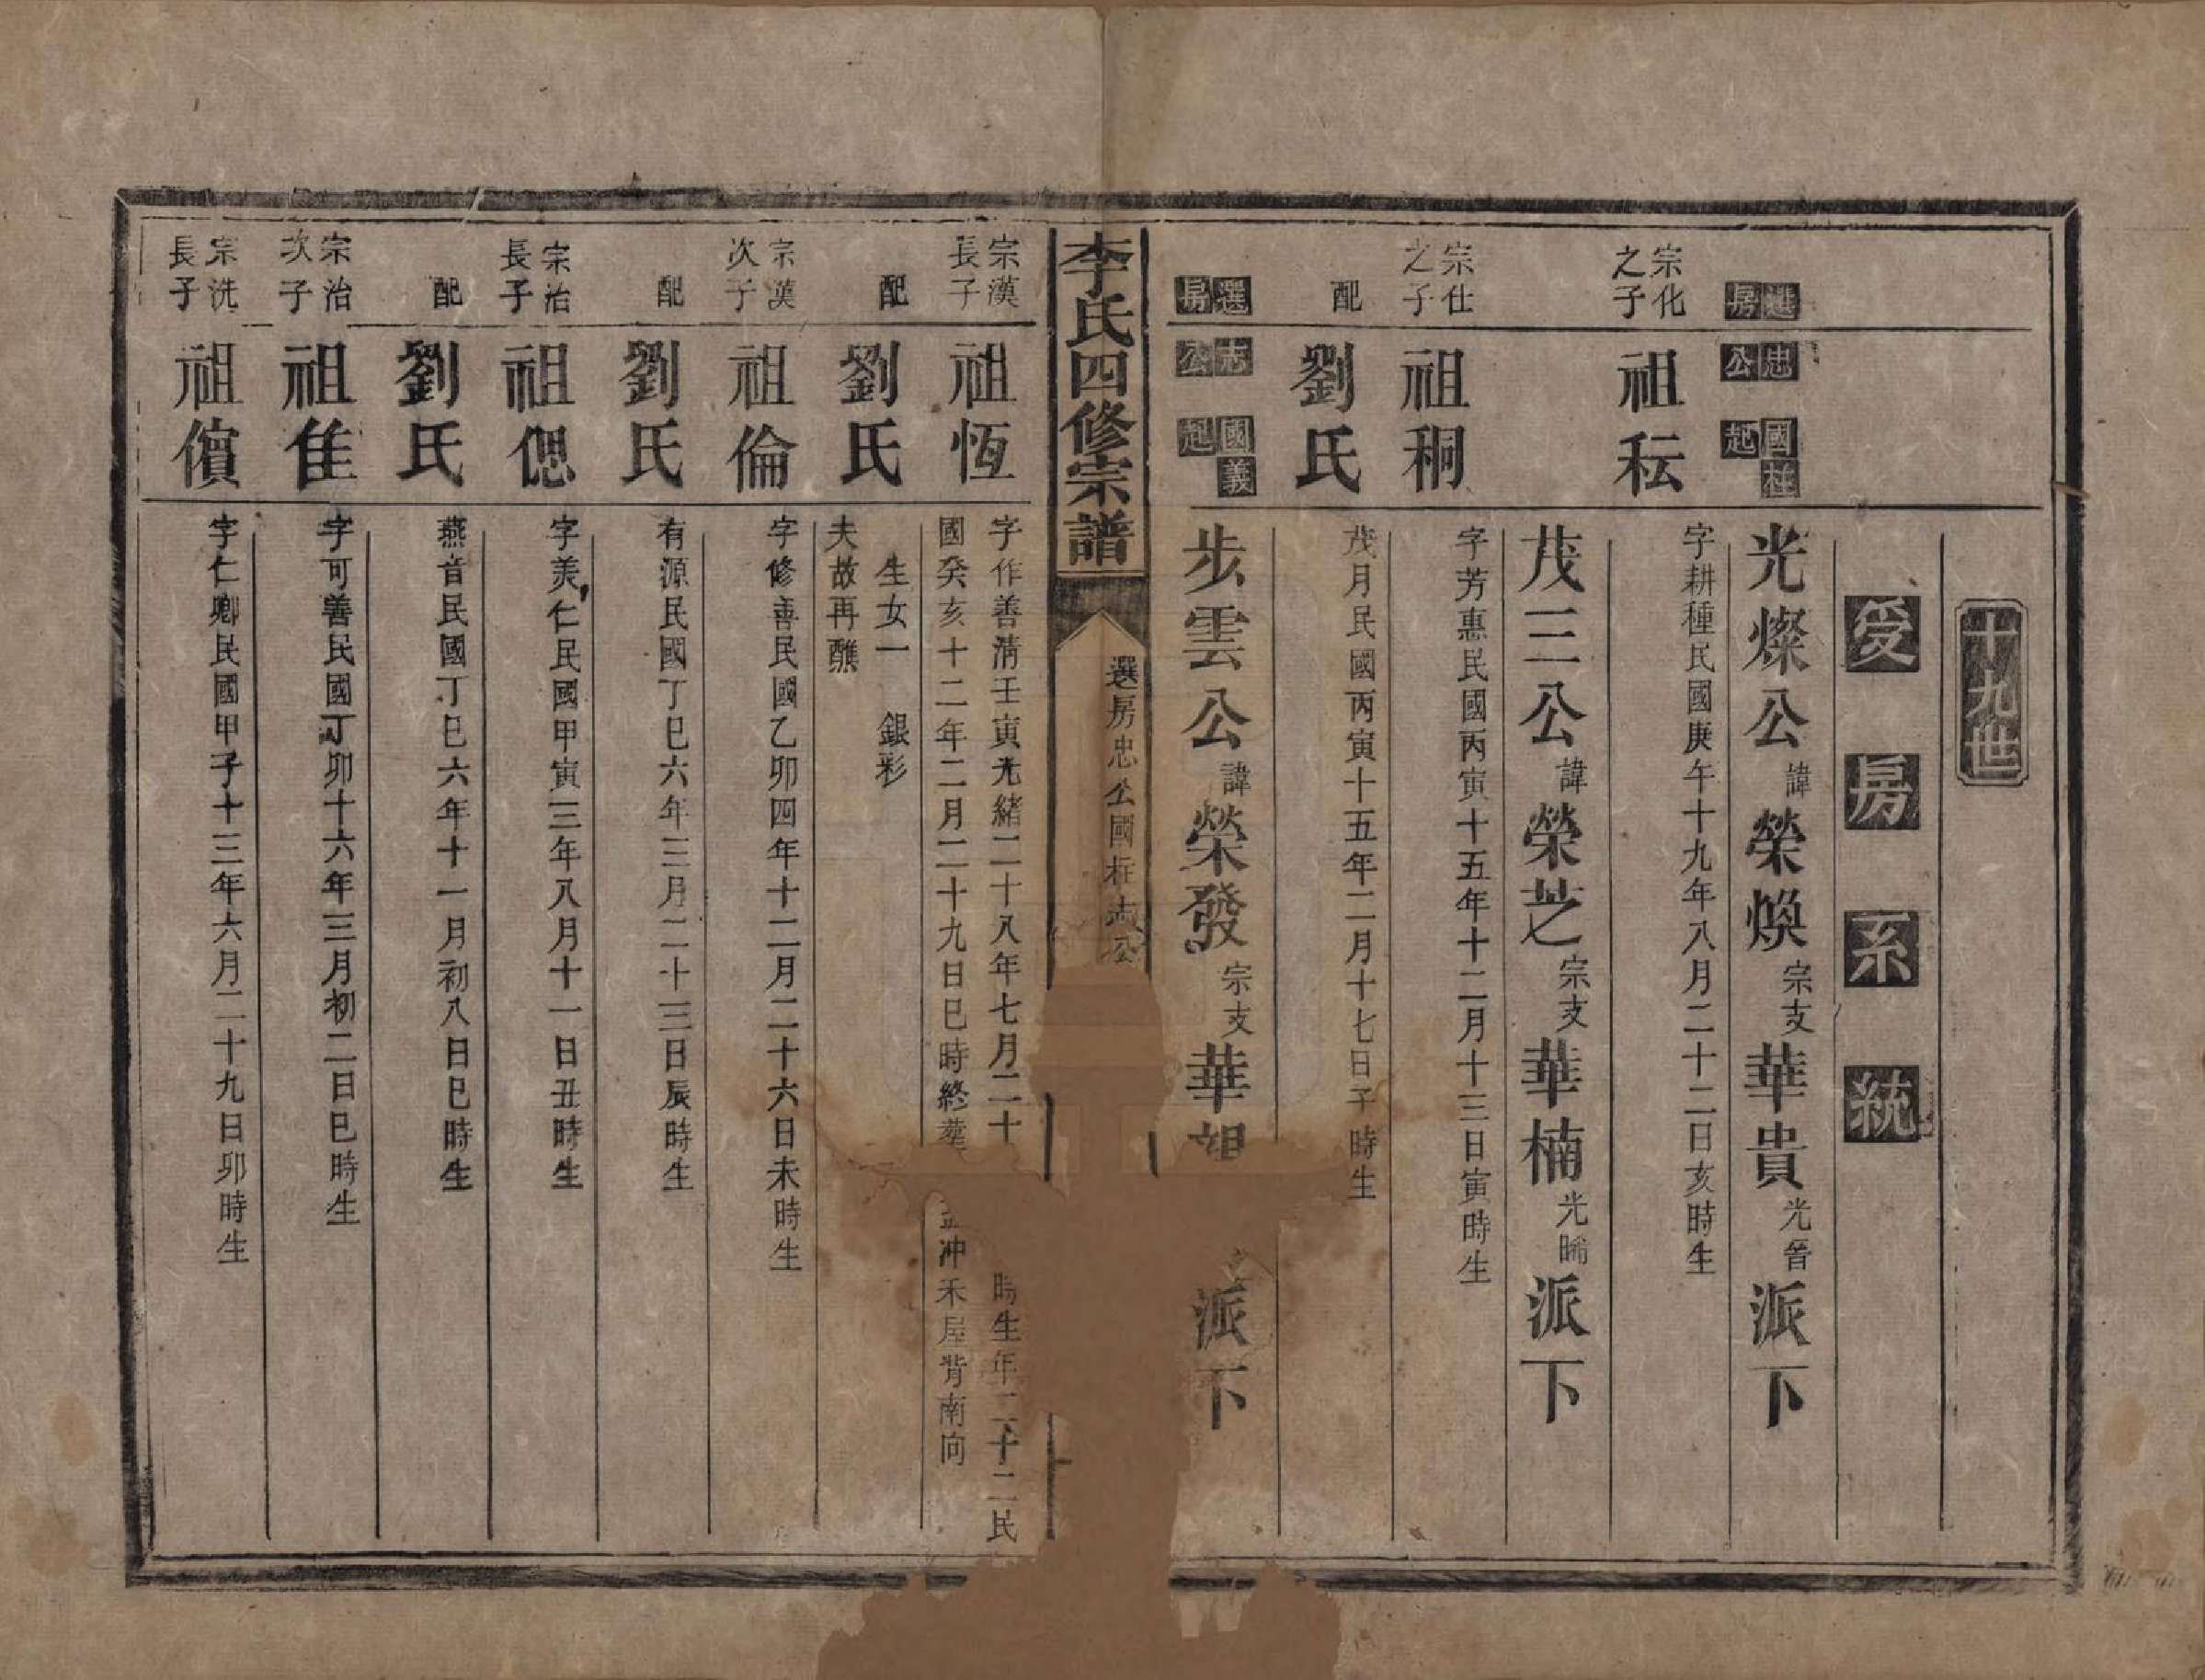 十九世
受房系統
選房 忠公 國柱起
光燦公諱榮煥宗支華貴光晉派下
宗化之子 祖秐 字耕種民國庚午十九年八月二十二日亥時生
茂三公諱榮芝宗支華楠光晞派下
宗仕之子 祖秱 字芳惠民國丙寅十五年十二月十三日寅時生
配 劉氏 茂月民國丙寅十五年二月十七日子時生
選房 志公 國義起
步雲公諱榮發宗支華 派下
李氏四修宗譜 選房忠公國柱志公
宗漢長子 祖恆 字作善清壬寅光緒二十八年七月二十 時生年二十二民
國癸亥十二年二月二十九日巳時終葬 冲禾屋背南向
配 劉氏 生女一 銀彩
夫故再醮
宗漢次子 祖倫 字修善民國乙卯四年十二月二十六日未時生
配 劉氏 有源民國丁巳六年三月二十三日辰時生
宗治長子 祖偲 字美仁民國甲寅三年八月十一日丑時生
配 劉氏 燕音民國丁巳六年十一月初八日巳時生
宗治次子 祖隹 字可善民國丁卯十六年三月初二日巳時生
宗洗長子 祖儐 字仁卿民國甲子十三年六月二十九日卯時生